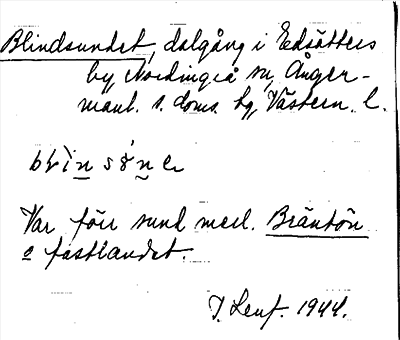 Blindsundet, dalgång i Edsätters
by Nordingrå sn, Ånger-
manl. s. doms. hg, Västern. l.
Var förr sund med. Bräntön
o fastlandet.
1944.